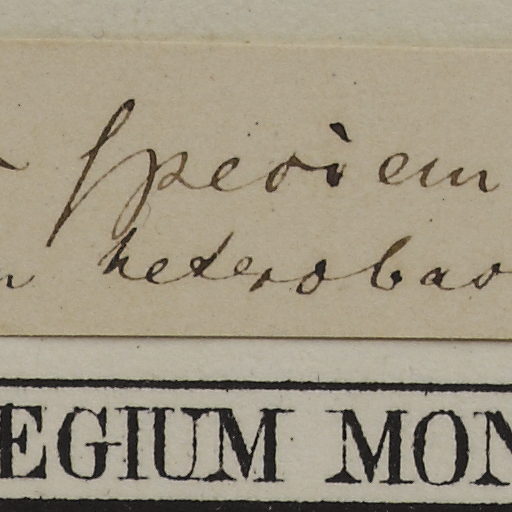 speciem
heterobas
EGIUM MON